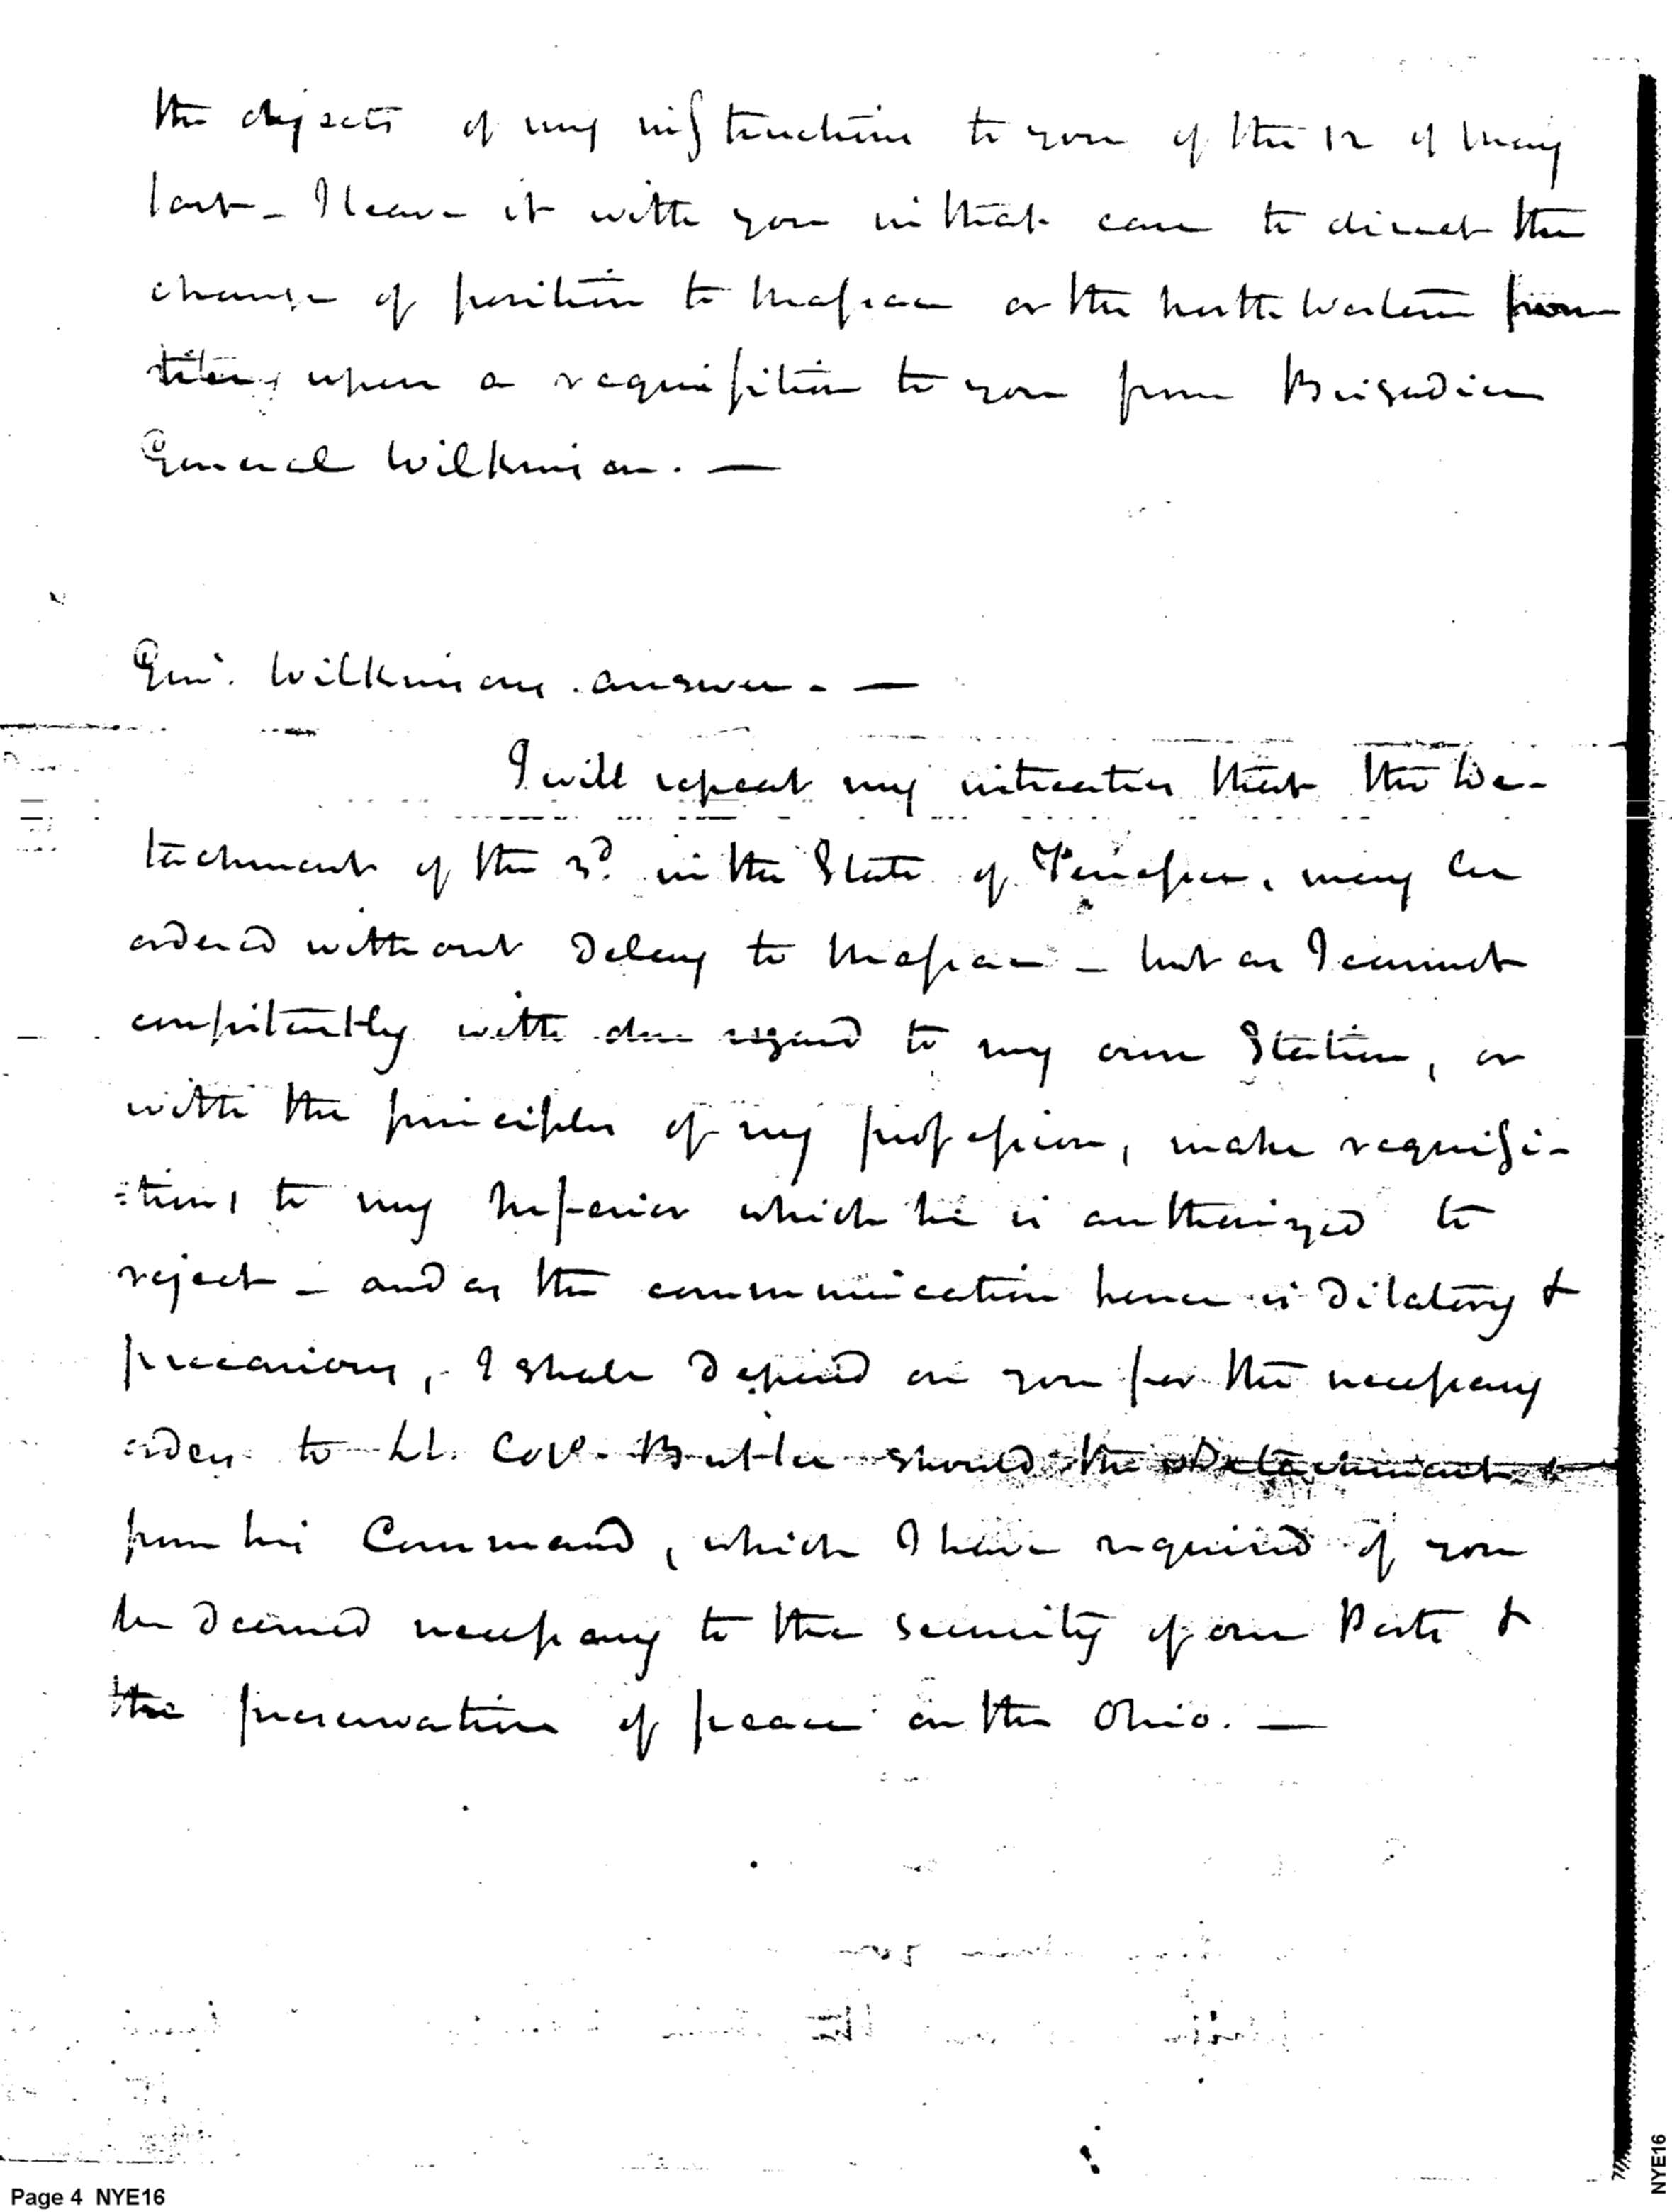 the objects of my instructions to you of the 12 of May
last - I leave it with you in that case to direct the
change of position to Massac or the north Western fron
tier, upon a requisition to you from Brigadier
General Wilkinson. —
Genl. Wilkinsons answer. —
I will repeat my intreaties that the De-
tachment of the 3d. in the State of Tenessee, may be
ordered without Delay to Massac - but as I cannot
consistently with due regard to my own Station, or
with the principles of my profession, make requisi-
=tions to my Inferior which he is authorized to
reject - and as the communication hence is Dilatory &
precarious, - I shall Depend on you for the necessary
orders to Lt. Col. Butler should the Detachment
from his Command, which I have required of you
be Deemed necessary to the security of our Posts &
the preservation of peace on the Ohio. —
Page 4 NYE16
NYE16